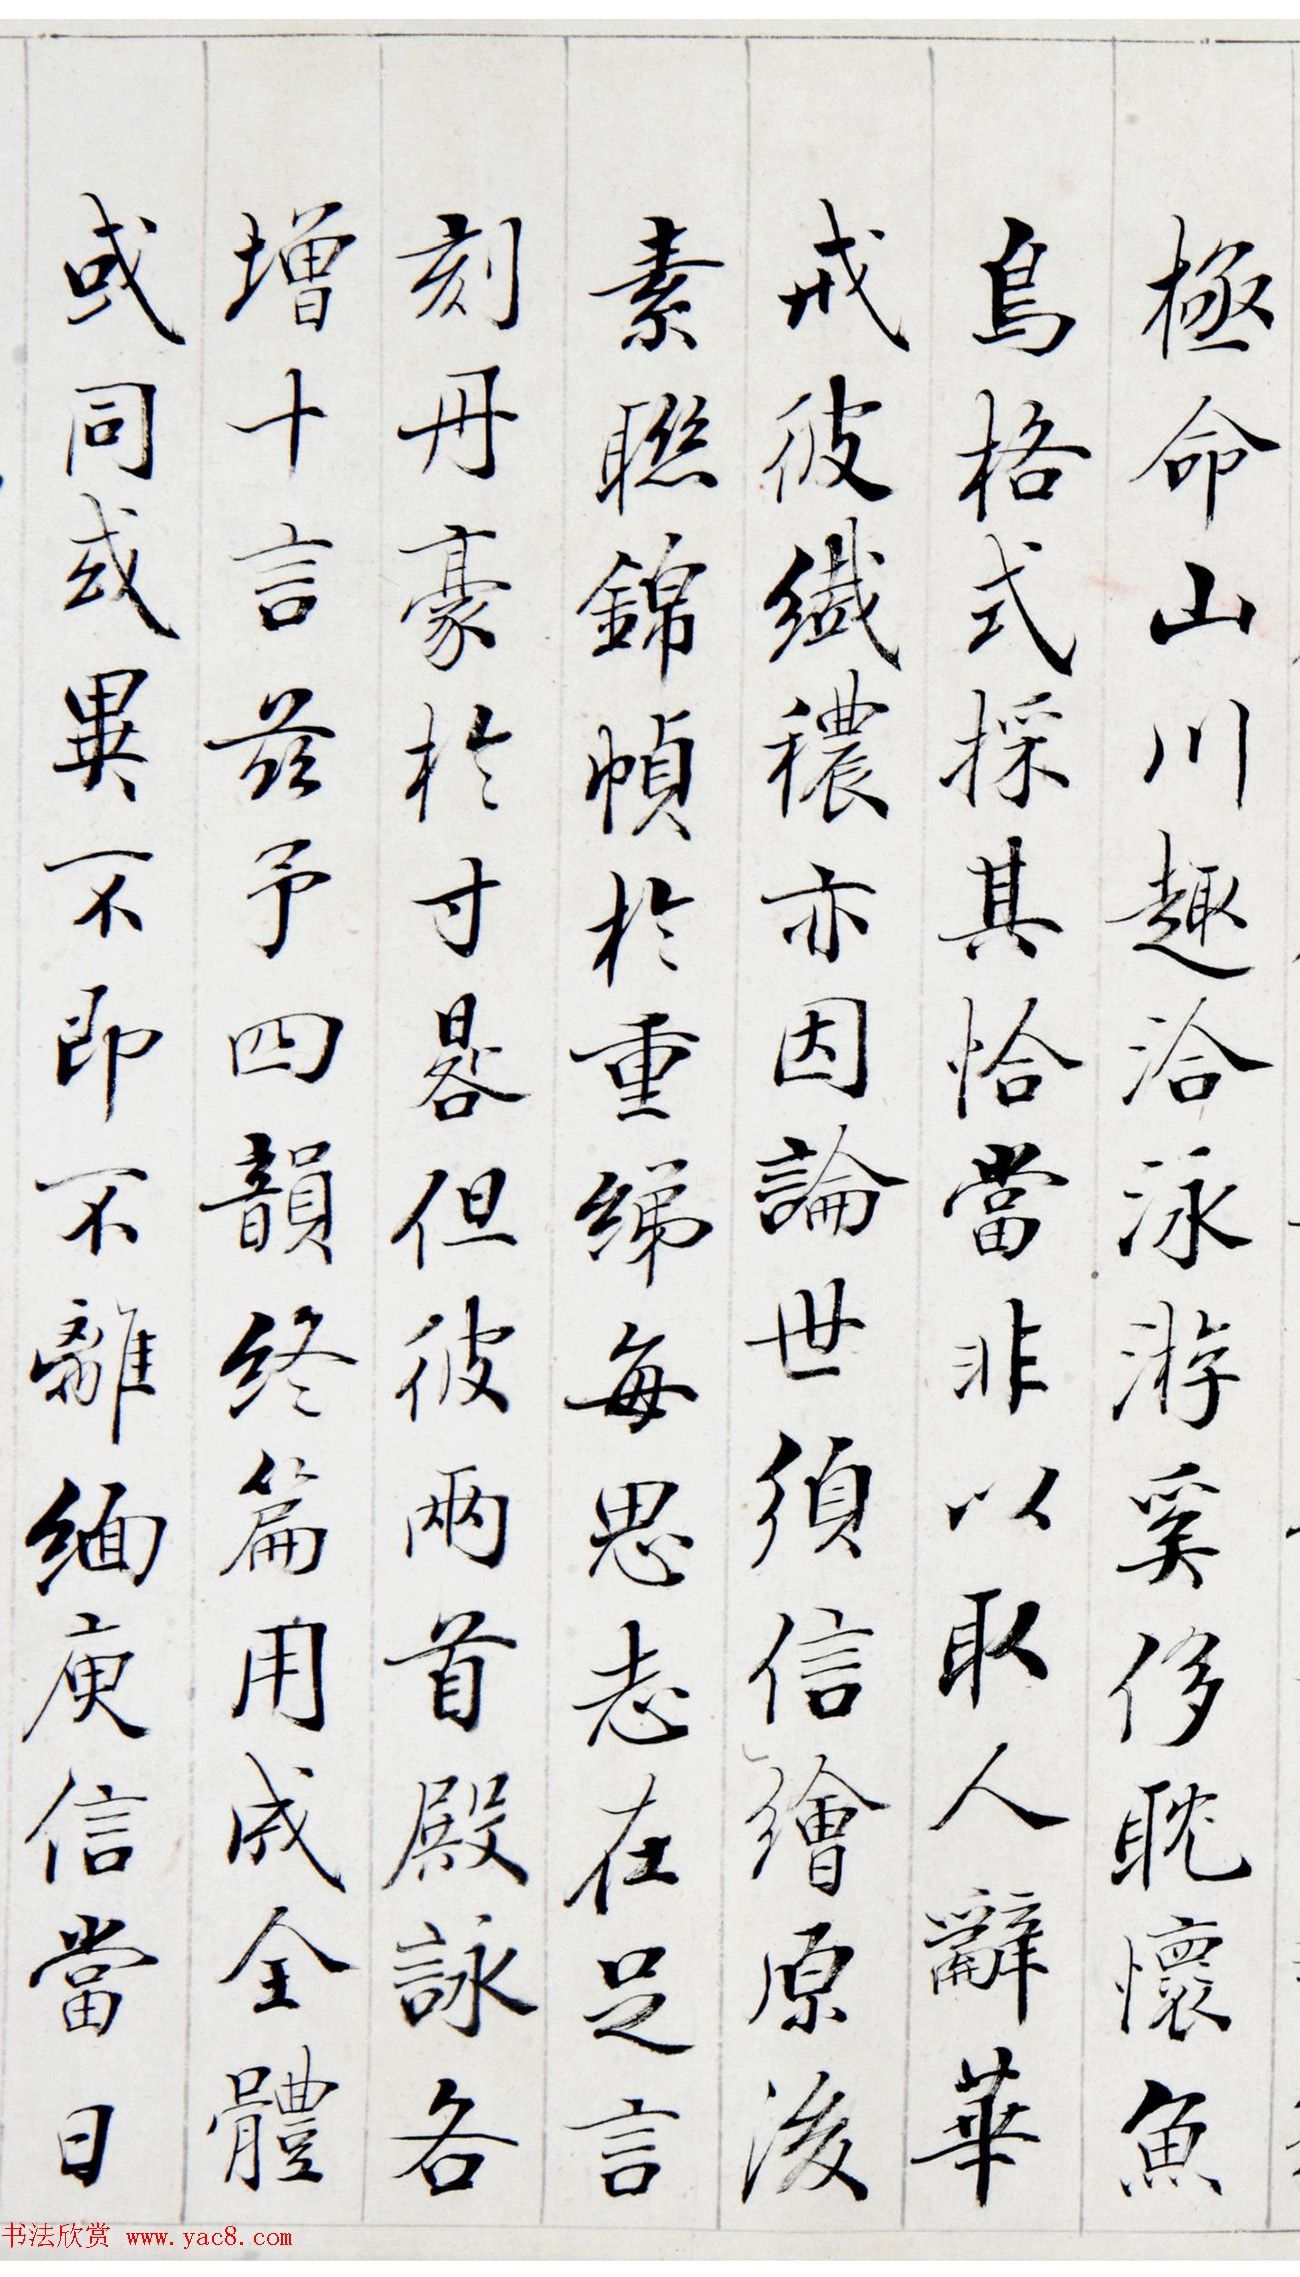 極命山川趣洽泳游奚侈耽懷魚
鳥格式採其恰當非以取人辭華
戒彼纖穠亦因論世須信繪原後
素聯錦幀於重綈每思志在足言
刻丹豪於寸晷但彼兩首殿詠各
增十言茲予四韻終篇用成全體
或同或異不即不離緬庾信當日
书法欣赏 www.yac8.com